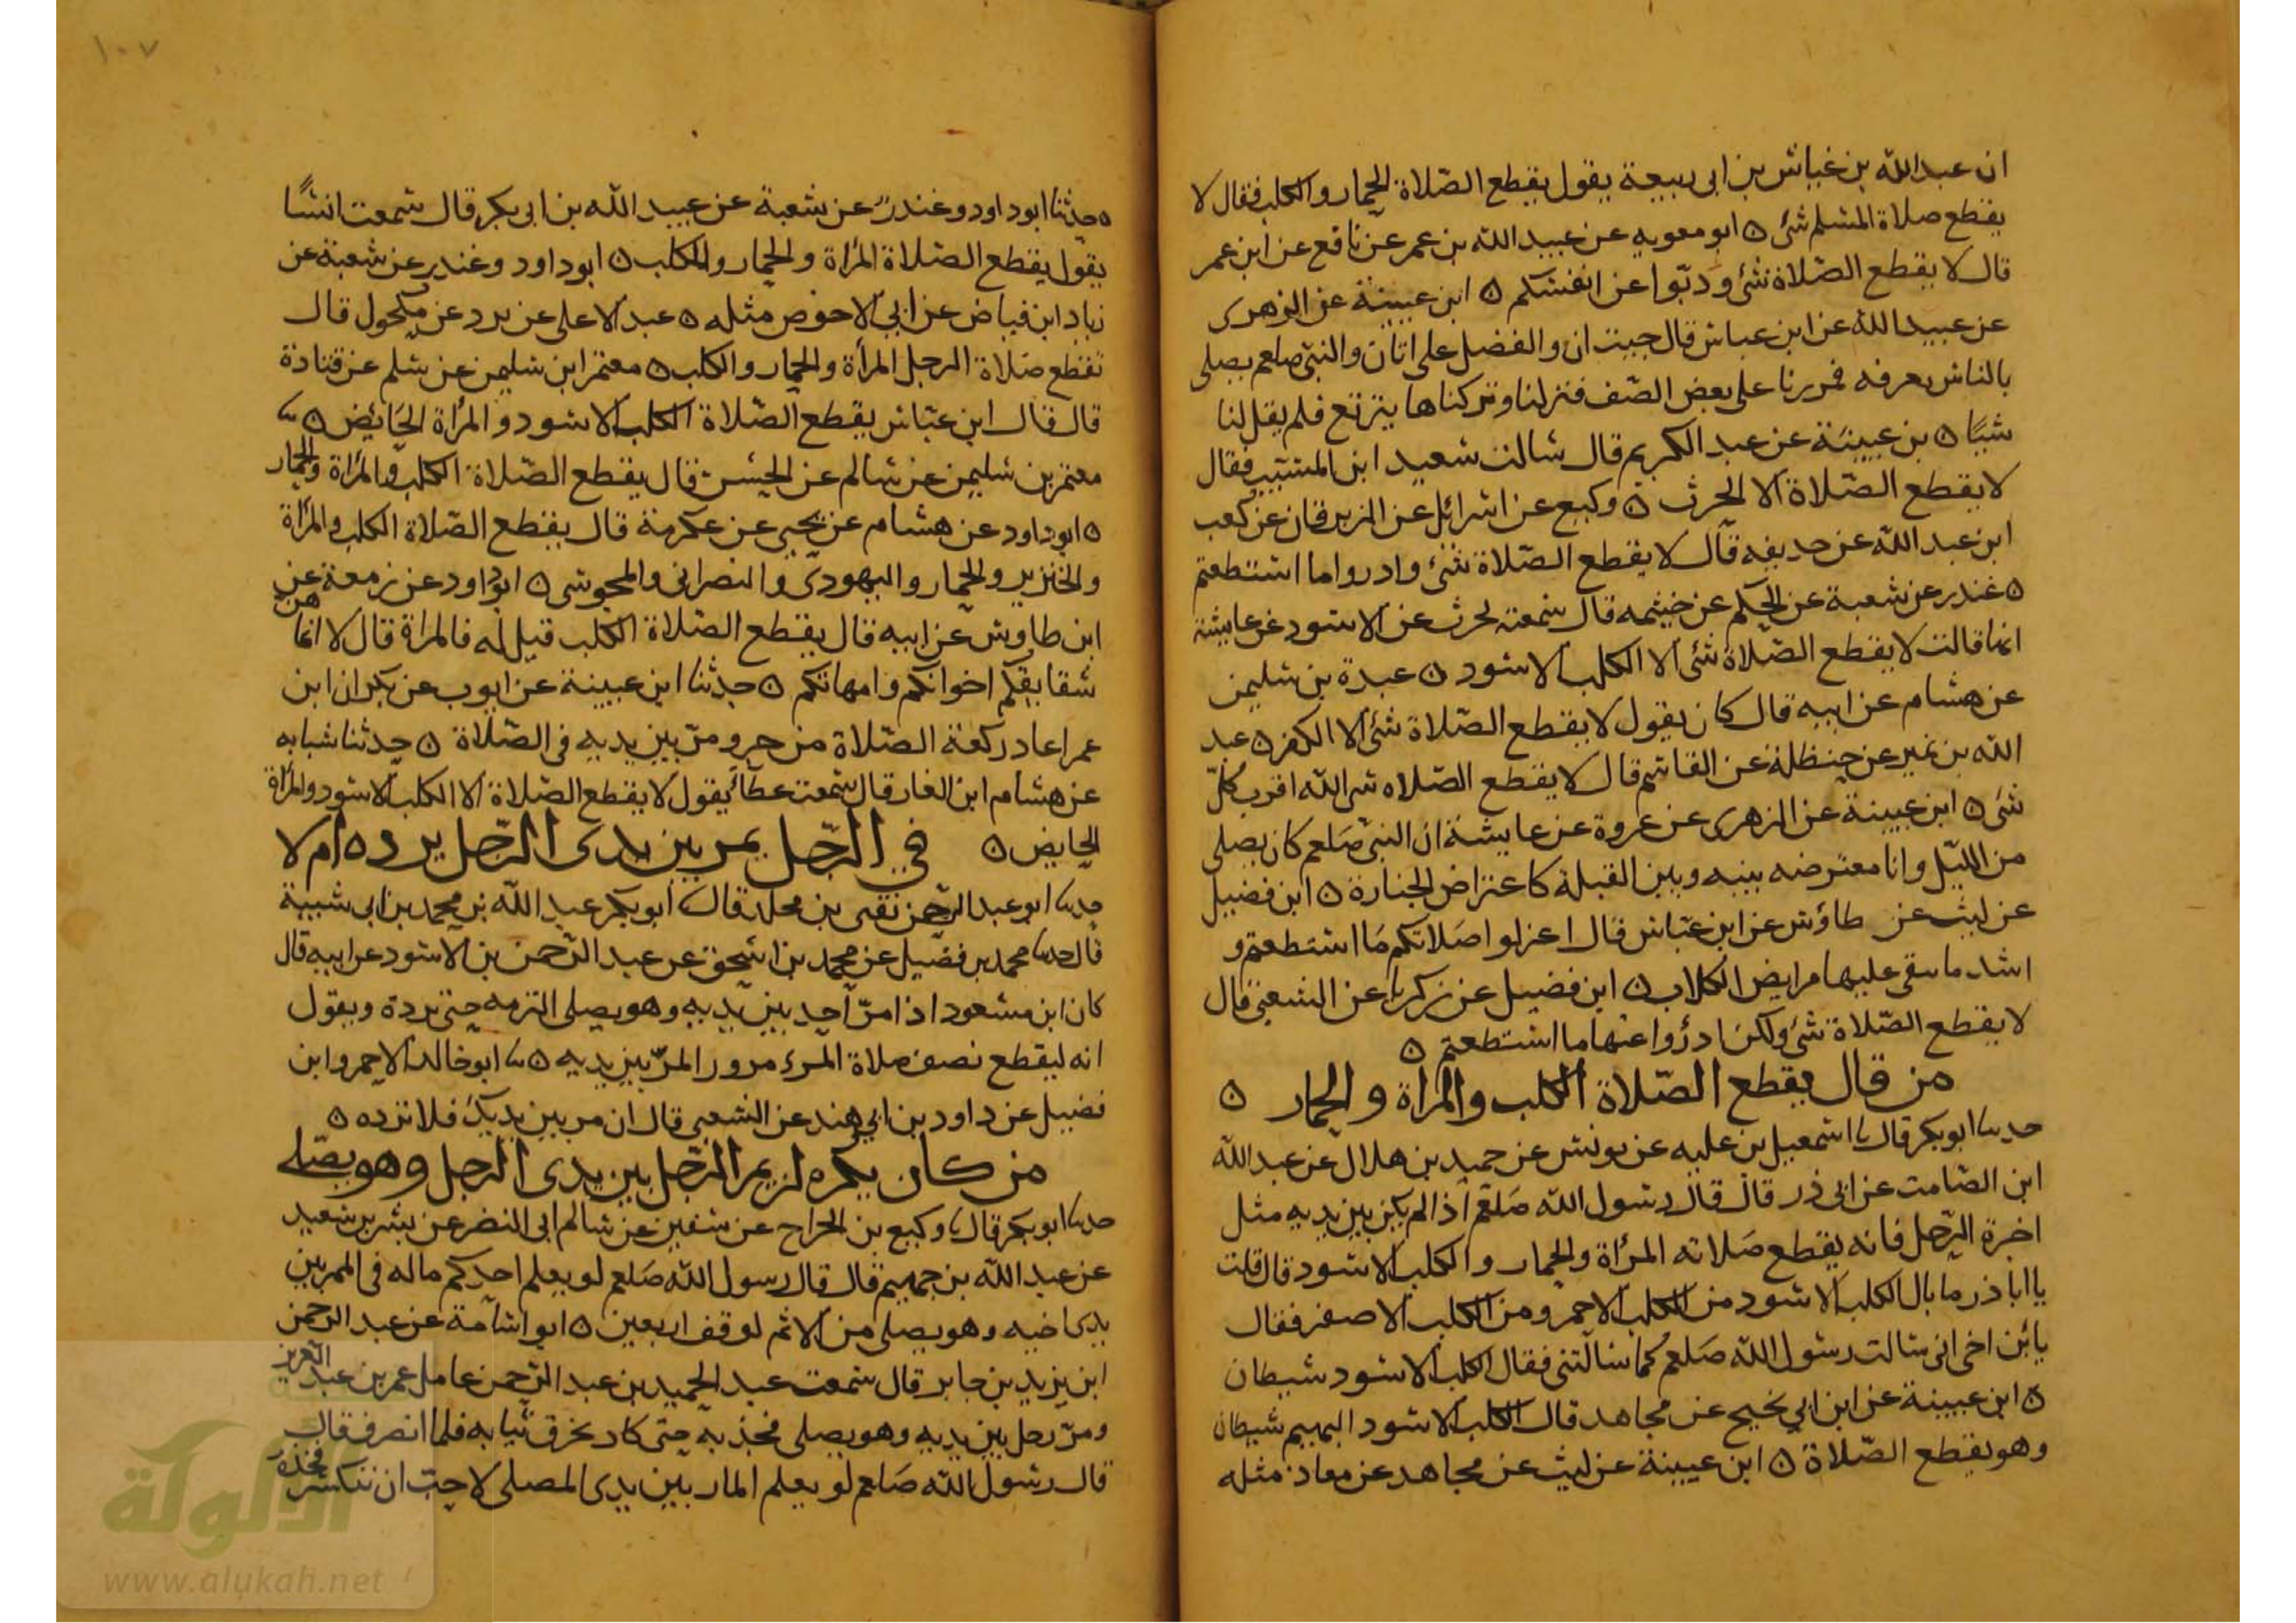 ان عبد الله بن عياش بن ابى ربيعة يقول يقطع الصّلاة الحمار والكلب فقال لا
يقطع صلاة المسلم شئ ه ابو معويه عن عبيد الله بن عمر عن نافع عن ابن عمر
قال لا يقطع الصّلاة شئ و دبّوا عن انفسكم ه ابن عيينة عن الزهرى
عن عبيد الله عن ابن عباس قال جيت انا والفضل على اتان والنبىّ صلعم يصلى
بالناس بعرفه فمررنا على بعض الصّف فنزلنا وتركناها ترتع فلم يقل لنا
شيئًا ه بن عيينة عن عبد الكريم قال سالت سعيد ابن المسيّب فقال
لا يقطع الصّلاة الا الحدث ه وكيع عن اسرائل عن الزبرقان عن كعب
ابن عبد الله عن حذيفه قال لا يقطع الصّلاة شئ وادروا ما استطعتم
ه غندر عن شعبة عن الحكم عن خيثمه قال سمعته يحدث عن الاسود عن عايشة
انها قالت لا يقطع الصّلاة شئ الا الكلب الاسود ه عبدة بن سليمن
عن هشام عن ابيه قال كان يقول لا يقطع الصّلاة شئ الا الكفر ه عبد
الله بن نمير عن حنظلة عن القاسم قال لا يقطع الصّلاه شى الله اقرب كلّ
شى ه ابن عيينة عن الزهرى عن عروة عن عايشة ان النبىّ صَلعم كان يصلى
من الليّل وانا معترضه بينه وبين القبلة كاعتراض الجنازة ه ابن فضيل
عن ليث عن طاؤس عن ابن عبّاس قال اعزلوا صَلاتكم مَا استطعتم و
اشد ما يتقى عليها مرابض الكلاب ه ابن فضيل عن زكريا عن الشعبىّ قال
لا يقطع الصّلاة شئ ولكن ادرؤا عنها ما استطعتم ه
من قال يقطع الصّلاة الكلب والمراة والحمار ه
حدثنا ابو بكر قال نا اسمعيل بن عليه عن يونس عن حميد بن هلال عن عبد الله
ابن الصّامت عن ابى ذر قال قال رسول الله صَلعم اذا لم يكن بين يديه مثل
اخرة الرّحل فانه يقطع صَلاته المرأة والحمار والكلب الاسود قال قلت
يا ابا ذر ما بال الكلب الاسود من الكلب الاحمر ومن الكلب الاصفر فقال
يا بن اخى انى سالت رسول الله صَلعم كما سالتنى فقال الكلب الاسود شيطان
ه ابن عيينة عن ابن ابي نجيح عن مجاهد قال الكلب الاسود البهيم شيطان
وهو يقطع الصّلاة ه ابن عيينة عن ليث عن مجاهد عن معاذ مثله
١٠٧
ه حدّثنا ابو داود وغندر عن شعبة عن عبيد الله بن ابى بكر قال سمعت انسًا
يقول يقطع الصّلاة المرأة والحمار والكلب ه ابو داود وغندر عن شعبة عن
زياد ابن فياض عن ابي الاحوص مثله ه عبد الاعلى عن برد عن مكحول قال
تقطع صَلاة الرجل المرأة والحمار والكلب ه معتمر ابن سليمن عن سلم عن قتادة
قال قال ابن عبّاس يقطع الصّلاة الكلب الاسود والمرأة الحَايض ه نا
معتمر بن سليمن عن سالم عن الحسن قال يقطع الصّلاة الكلب والمرأة والحمار
ه ابو داود عن هشام عن يحيى عن عكرمة قال يقطع الصّلاة الكلب والمرأة
والخنزير والحمار واليهودىّ والنصرانى والمجوسى ه ابو داود عن زمعة عن
ابن طاوس عن ابيه قال يقطع الصّلاة الكلب قيل له فالمراة قال لا انما هن
شقايقكم اخواتكم وامهاتكم ه حدثنا ابن عيينة عن ايوب عن بكر ان ابن
عمر اعاد ركعة الصّلاة من جرو مرّ بين يديه فى الصّلاة ه حدثنا شبابه
عن هشام ابن الغار قال سمعت عطآءً يقول لا يقطع الصّلاة الا الكلب الاسود والمرأة
الحايض ه في الرّجل يمر بين يدى الرّجل يرده ام لا
حدثنا ابو عبد الرّحمن بقى بن مخلد قال نا ابو بكر عبد الله بن محمد بن ابى شيبة
قال حدثنا محمد بن فضيل عن محمد بن اسحق عن عبد الرّحمن بن الاسود عن ابيه قال
كان ابن مسعود اذا مرّ احد بين يديه وهو يصلى التزمه حتى يردة ويقول
انه ليقطع نصف صلاة المرء مرور المرّ بين يديه ه نا ابو خالد الاحمر وابن
فضيل عن داود بن ابي هند عن الشعبى قال ان مر بين يديك فلا ترده ه
من كان يكره ان يمر الرّجل بين يدى الرجل وهو يصّلى
حدثنا ابو بكر قال نا وكيع بن الجراح عن سفين عن سالم ابى النضر عن بشر بن سعيد
عن عبد الله بن جهيم قال قال رسول الله صَلعم لو يعلم احدكم ماله فى الممر بين
يدى اخيه وهو يصلى من الاثم لوقف اربعين ه ابو اسَامة عن عبد الرحمن
ابن يزيد بن جابر قال سمعت عبد الحميد بن عبد الرّحمن عامل عمر بن عبد العزيز
ومرّ رجل بين يديه وهو يصلى فجبذ به حتى كاد يخرق ثيابه فلما انصرف قال
قال رسول الله صَلعم لو يعلم المار بين يدى المصلى لاحبّ ان تنكسر فخذه
الألوكة
www.alukah.net